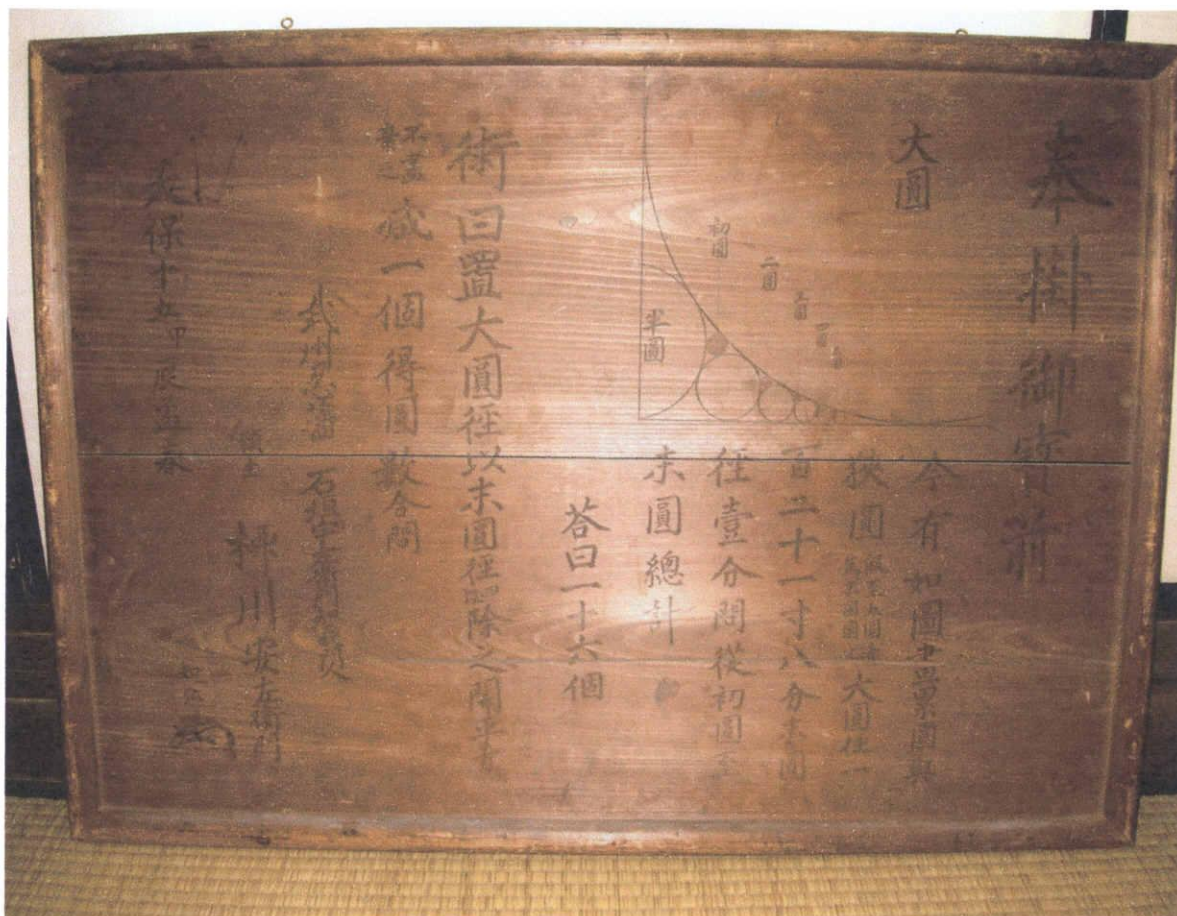 奉掛御宝前
大圓
初圓
二圓
三圓
四圓
半圓
今有如圖
挾圓
大圓径一
百二十一寸八分末圓
径壹分問從初圓至
末圓總計
荅曰一十六個
術曰置大圓径以末圓径除之開平方
不盡棄之
減一個得圓數合問
武州忍藩
石垣
門人
柳川安左衛門
天保十五甲辰孟春